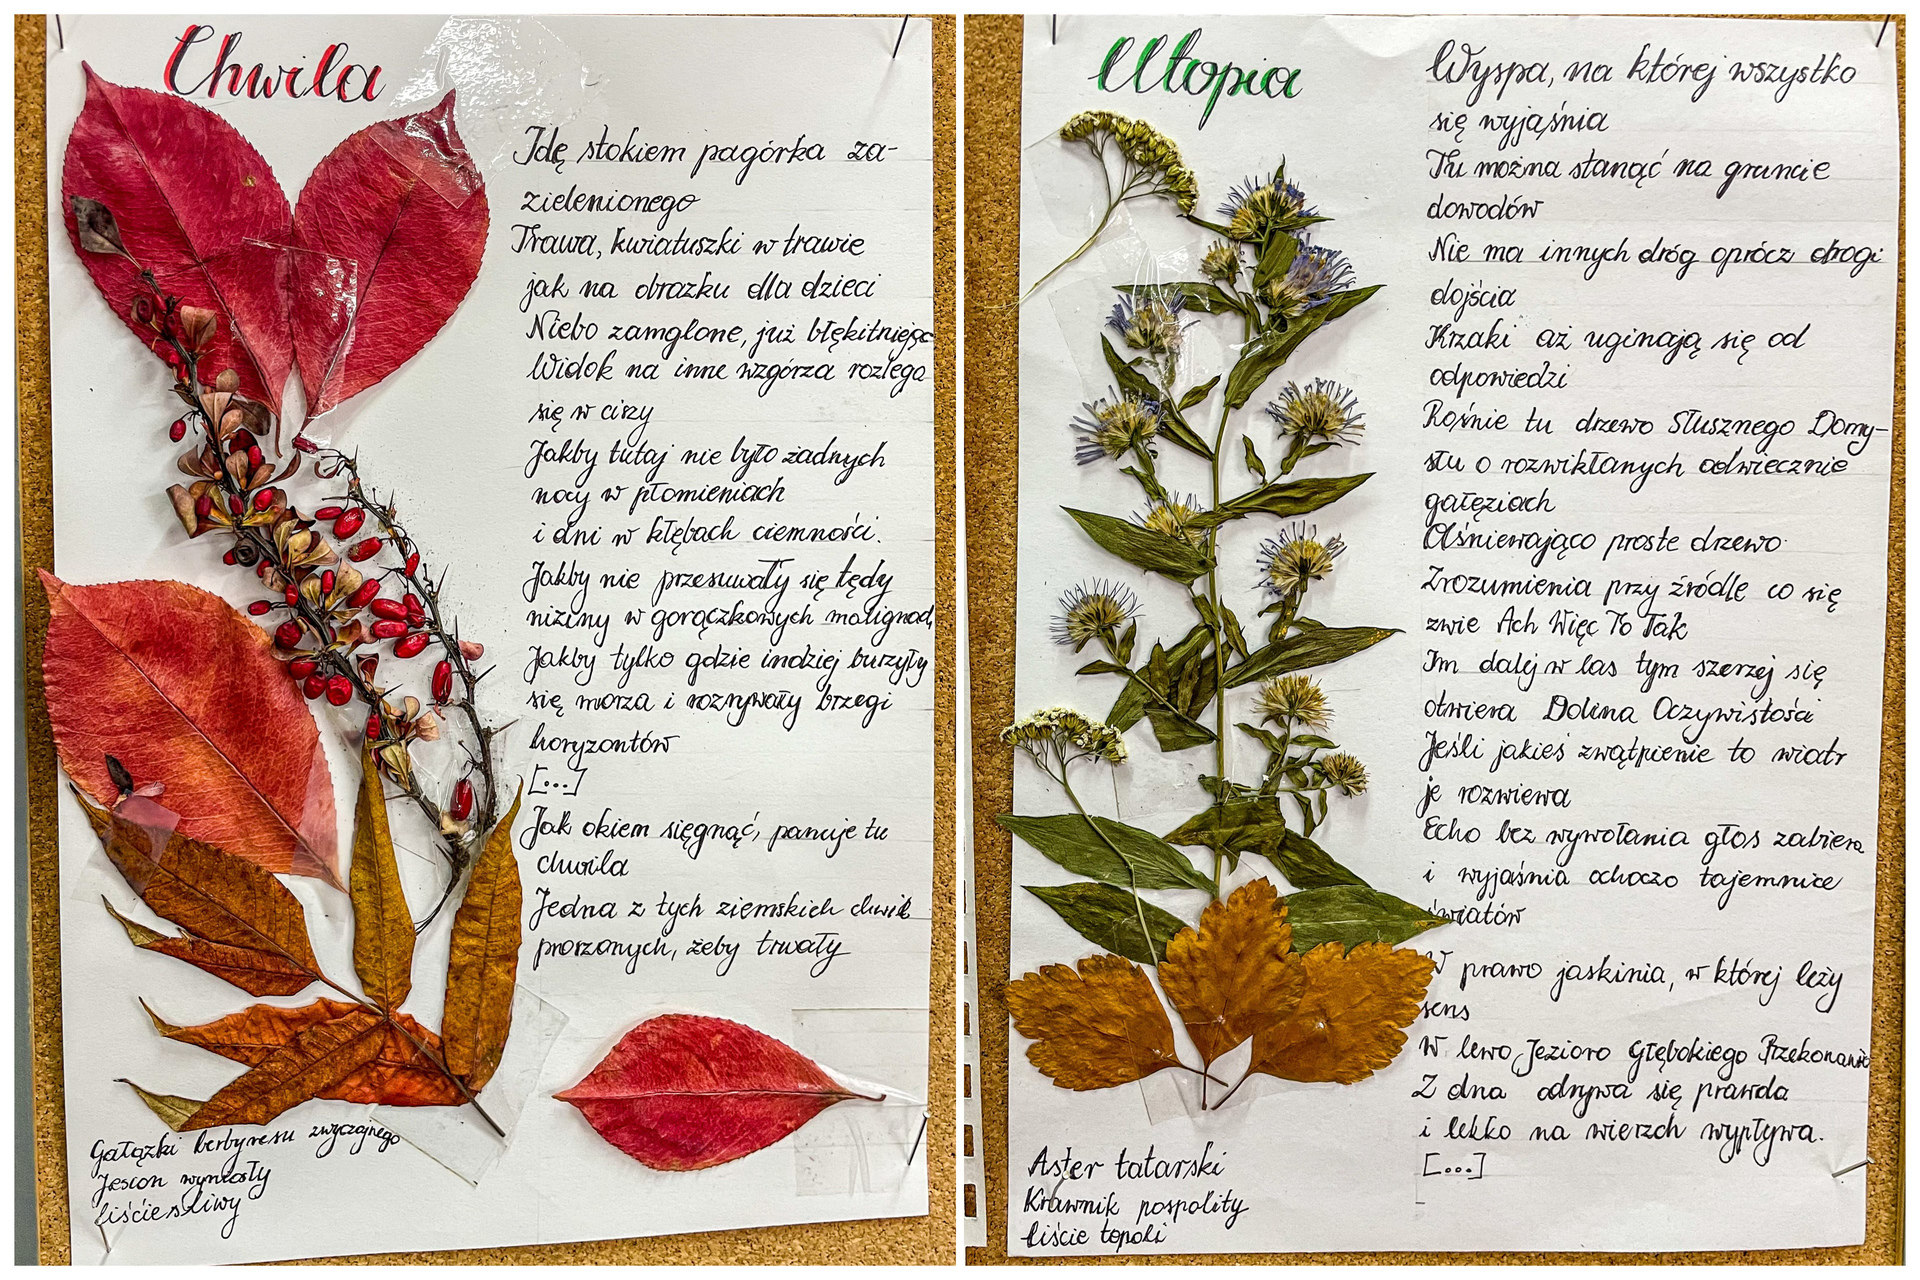 Chwila
Idę stokiem pagórka za-
zielenionego
Trawa, kwiatuszki w trawie
jak na obrazku dla dzieci
Niebo zamglone, już błękitniejąc
Widok na inne wzgórza rozlega
się w ciszy
Jakby tutaj nie było żadnych
nocy w płomieniach
i dni w kłębach ciemności.
Jakby nie przesuwały się tędy
niziny w gorączkowych malignach,
Jakby tylko gdzie indziej burzyły
się morza i rozrywały brzegi
horyzontów
[...]
Jak okiem sięgnąć, panuje tu
chwila
Jedna z tych ziemskich chwil
proszonych, żeby trwały
Gałązki berberysu zwyczajnego
Jesion wyniosły
liście śliwy
Utopia
Wyspa, na której wszystko
się wyjaśnia
Tu można stanąć na gruncie
dowodów
Nie ma innych dróg oprócz drogi
dojścia
Krzaki aż uginają się od
odpowiedzi
Rośnie tu drzewo Słusznego Domy-
słu o rozwikłanych odwiecznie
gałęziach
Olśniewająco proste drzewo
Zrozumienia przy źródle co się
zwie Ach Więc To Tak
Im dalej w las tym szerzej się
otwiera Dolina Oczywistości
Jeśli jakieś zwątpienie to wiatr
je rozwiewa
Echo bez wywołania głos zabiera
i wyjaśnia ochoczo tajemnice
światów
W prawo jaskinia, w której leży
sens
W lewo Jezioro Głębokiego Przekonania
Z dna odrywa się prawda
i lekko na wierzch wypływa.
[...]
Aster tatarski
Krawnik pospolity
liście topoli